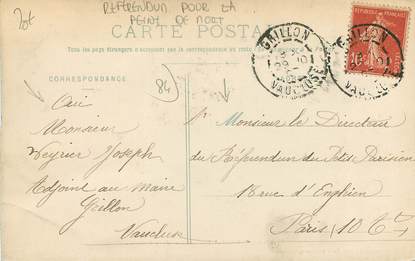 REFERENDUM POUR LA
PEINE DE MORT
CARTE POSTALE
Tous les pays étrangers n'acceptent pas la correspondance au recto
CORRESPONDANCE
84
GRILLON
VAUCLUSE
GRILLON
VAUCLUSE
Oui
Monsieur
Veyrier Joseph
Adjoint au Maire
Grillon
Vaucluse
Monsieur le Directeur
du Référendum du Petit Parisien
18 rue d'Enghien
Paris 10